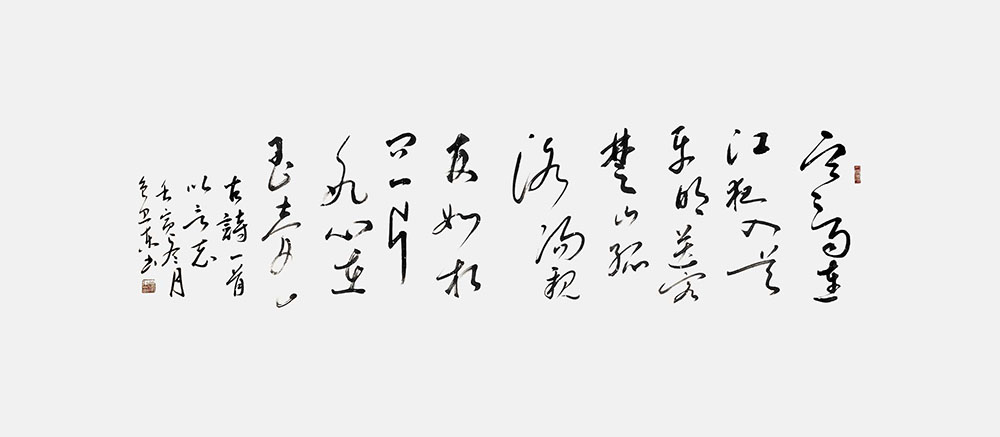 寒雨連
江夜入吴
平明送客
楚山孤
洛陽親
友如相
问一片
冰心在
玉壶
古詩一首
以言志
壬寅冬月
卫东书